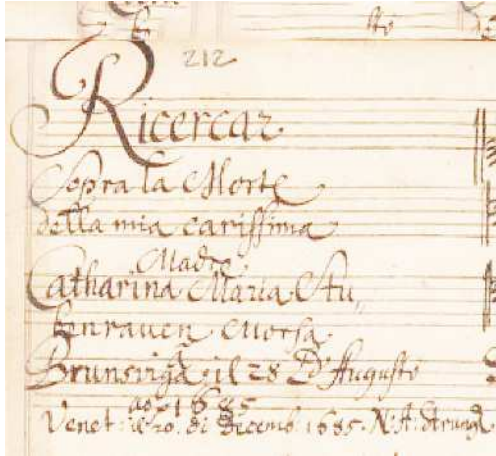 212
Ricercar
Sopra la Morte
della mia carissima
Madre
Catharina Maria Stu„
benrauch Morsa
Brunsviga il 28 D'Augusto
ao 1685
Venet: il 20. di Decemb. 1685. N: A: